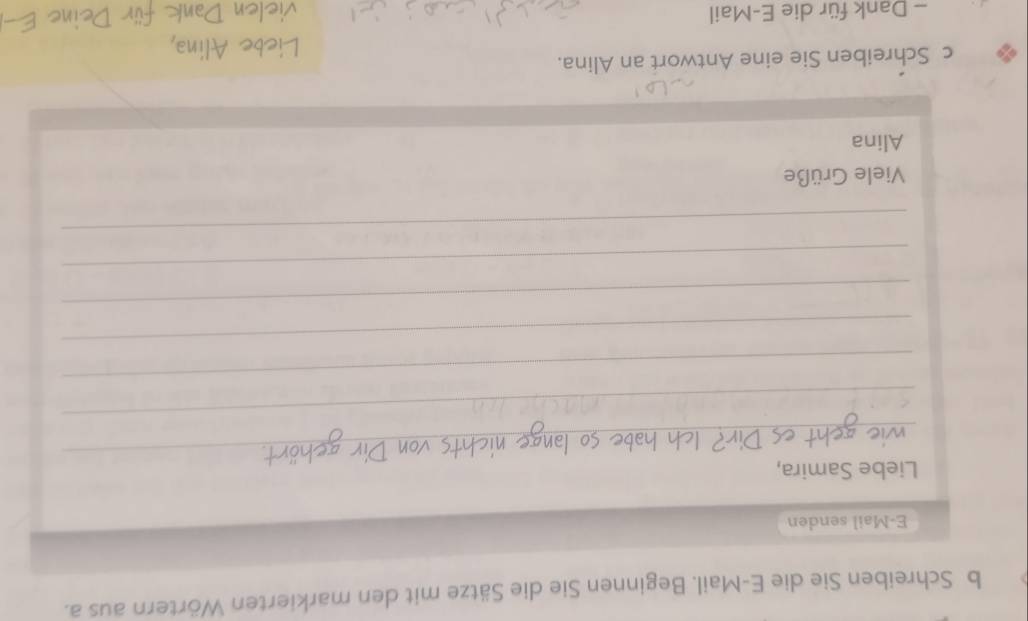 b Schreiben Sie die E-Mail. Beginnen Sie die Sätze mit den markierten Wörtern aus a.
E-Mail senden
Liebe Samira,
wie geht es Dir? Ich habe so lange nichts von Dir gehört.
Viele Grüße
Alina
c Schreiben Sie eine Antwort an Alina.
Liebe Alina,
– Dank für die E-Mail
vielen Dank für Deine E-